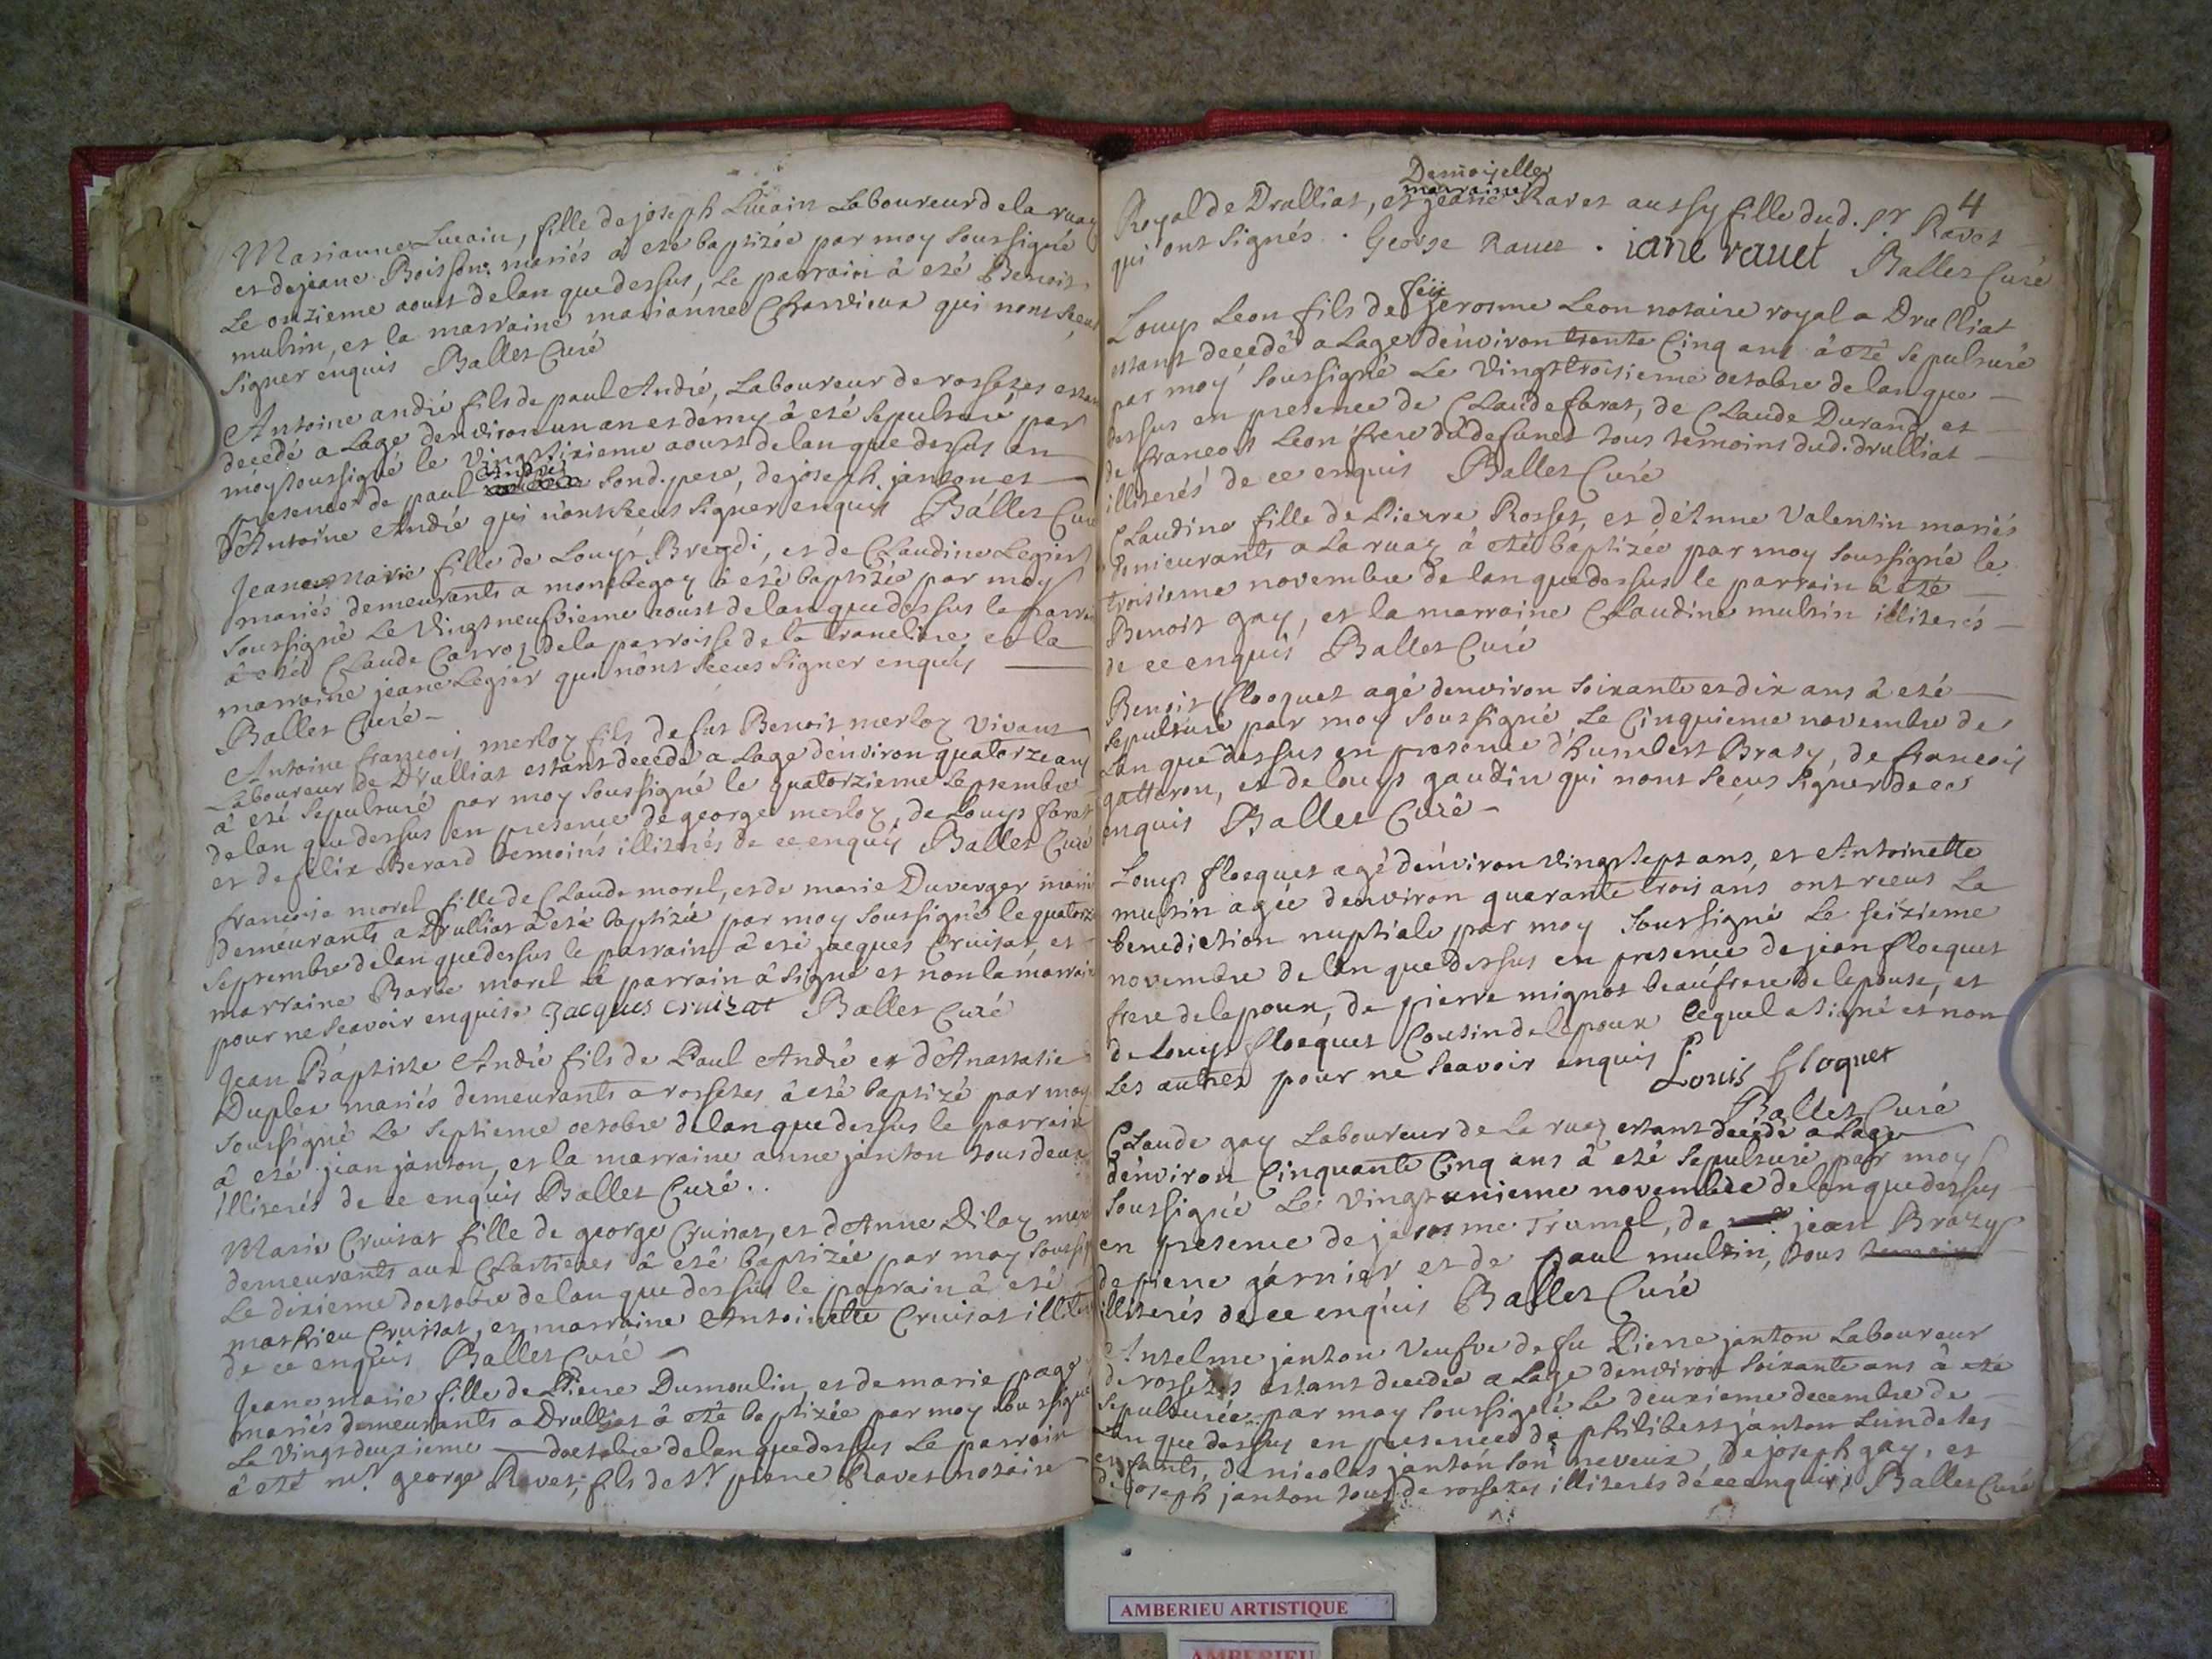 Marianne Lucain, fille de joseph Lucain Laboureur de la ruaz
et dejeane Boisson mariés â eté baptizée par moy soussigné
Le onzieme aoust delan que dessus, Le parrain â eté Benoit
multin, et la marraine marianne Charvieux qui nont sceus
signer enquis Ballet Curé
Antoine andré fils de paul André, Laboureur de rossetes estant
decedé a Lage denviron un an et demy â eté sepulturé par
moy soussigné le vingtsixieme aoust delan que dessus en
presence de paul André sond. pere, de joseph janton et
d'Antoine André qui n'ont sceus signer enquis Ballet Curé
Jeane marie fille de Louys Bregdi, et de Claudine Legier
mariés demeurants a montbegoz â eté baptizée par moy
soussigné Le vingtneufvieme aoust delan que dessus le parrain
â eté Claude Carroz dela parroisse de la tranclire, et la
marraine jeane Legier qui n'ont sceus signer enquis
Ballet Curé
Antoine françois merloz fils de fut Benoit merloz vivant
Laboureur de Drulliat estant decedé a Lage d'environ quatorze ans
â eté sepulturé par moy soussigné le quatorzieme septembre
delan que dessus en presence de george merloz, de Louys farat
et de felix Berard temoins illiterés de ce enquis Ballet Curé
francoise morel fille de Claude morel, et de marie Duverger mariés
demeurants a Drulliat â eté baptizée par moy soussigné le quatorz
septembre delan que dessus le parrain â eté jacques Cruisat, et
marraine Barbe morel Le parrain â signé et non la marraine
pour ne scavoir enquise Jacques cruizat Ballet Curé
Jean Baptiste André fils de Paul André et d'Anastasie
Duplex mariés demeurants a rossetes â eté baptizé par moy
soussigné Le septieme octobre delan que dessus le parrain
â eté jean janton, et la marraine anne janton tous deux
illiterés de ce enquis Ballet Curé..
Marie Cruisat fille de george Cruisat, et d'Anne Dilaz mariés
demeurants aux Chartieres â eté baptizée par moy soussig
Le dixieme doctobre delan que dessus le parrain â eté
mathieu Cruisat, et marraine Antoinette Cruisat illiter
de ce enquis Ballet Curé
Jeane marie fille de Pierre Dumoulin, et de marie page
mariés demeurants a Drulliat â eté baptizée par moy soussigné
Le vingtdeuxieme doctobre delan que dessus Le parrain
â eté mr. george Ravet, fils de sr pierre Ravet notaire
4
Demoiselle
Royal de Drulliat, et marraine jeane Ravet aussy fille dud. sr Ravet
qui ont signés. George Rauet. iane rauet Ballet Curé
Loup Leon fils de feü jerosme Leon notaire royal a Drulliat
estant decedé a Lage d'environ trente Cinq ans â eté sepulturé
par moy soussigné Le vingttroisieme octobre delan que
dessus en presence de Claude farat, de Claude Durand, et
de françois Leon frere du defunct tous temoins dud. drulliat
illiterés de ce enquis Ballet Curé
Claudine fille de Pierre Rosset, et d'Anne Valentin mariés
demeurants a La ruaz â eté baptizée par moy soussigné le
troisieme novembre delan que dessus le parrain â eté
Benoit gay, et la marraine Claudine multin illiterés
de ce enquis Ballet Curé
Benoit flocquet agé denviron soixante et dix ans â eté
sepulturé par moy soussigné Le Cinquieme novembre de
Lan que dessus en presence d'humbert Brazy, de francois
gatteron, et de louys gaudin qui nont sceus signer de ce
enquis Ballet Curé
Louys flocquet agé denviron vingtsept ans, et Antoinette
multin agée denviron quarante trois ans ont receus La
benediction nuptiale par moy soussigné Le seizieme
novembre delan que dessus en presence de jean flocquet
frere delepoux, de pierre mignot beaufrere delepouse, et
de Louys flocquet Cousin delepoux lequel a signé et non
Les autres pour ne scavoir enquis Louis floquet
Ballet Curé
Claude gay Laboureur de La ruaz estant decedé a Lage
denviron Cinquante Cinq ans â eté sepulturé par moy
soussigné Le vingt unieme novembre delan que dessus
en presence de jerosme Trumel, de jean Brazy
de pierre garnier et de paul multin, tous
illiterés de ce enquis Ballet Curé
Antelme janton veufve de fu Pierre janton Laboureur
de rossetes estant decedée a Lage denviron soixante ans â eté
sepulturée par moy soussigné Le deuxieme decembre de
Lan que dessus en presence de philibert janton Lun de ses
enfants, de nicolas janton son neveux, de joseph gay, et
de joseph janton tous de rossetes illiterés de ce enquis Ballet Curé
AMBERIEU ARTISTIQUE
AMBERIEU